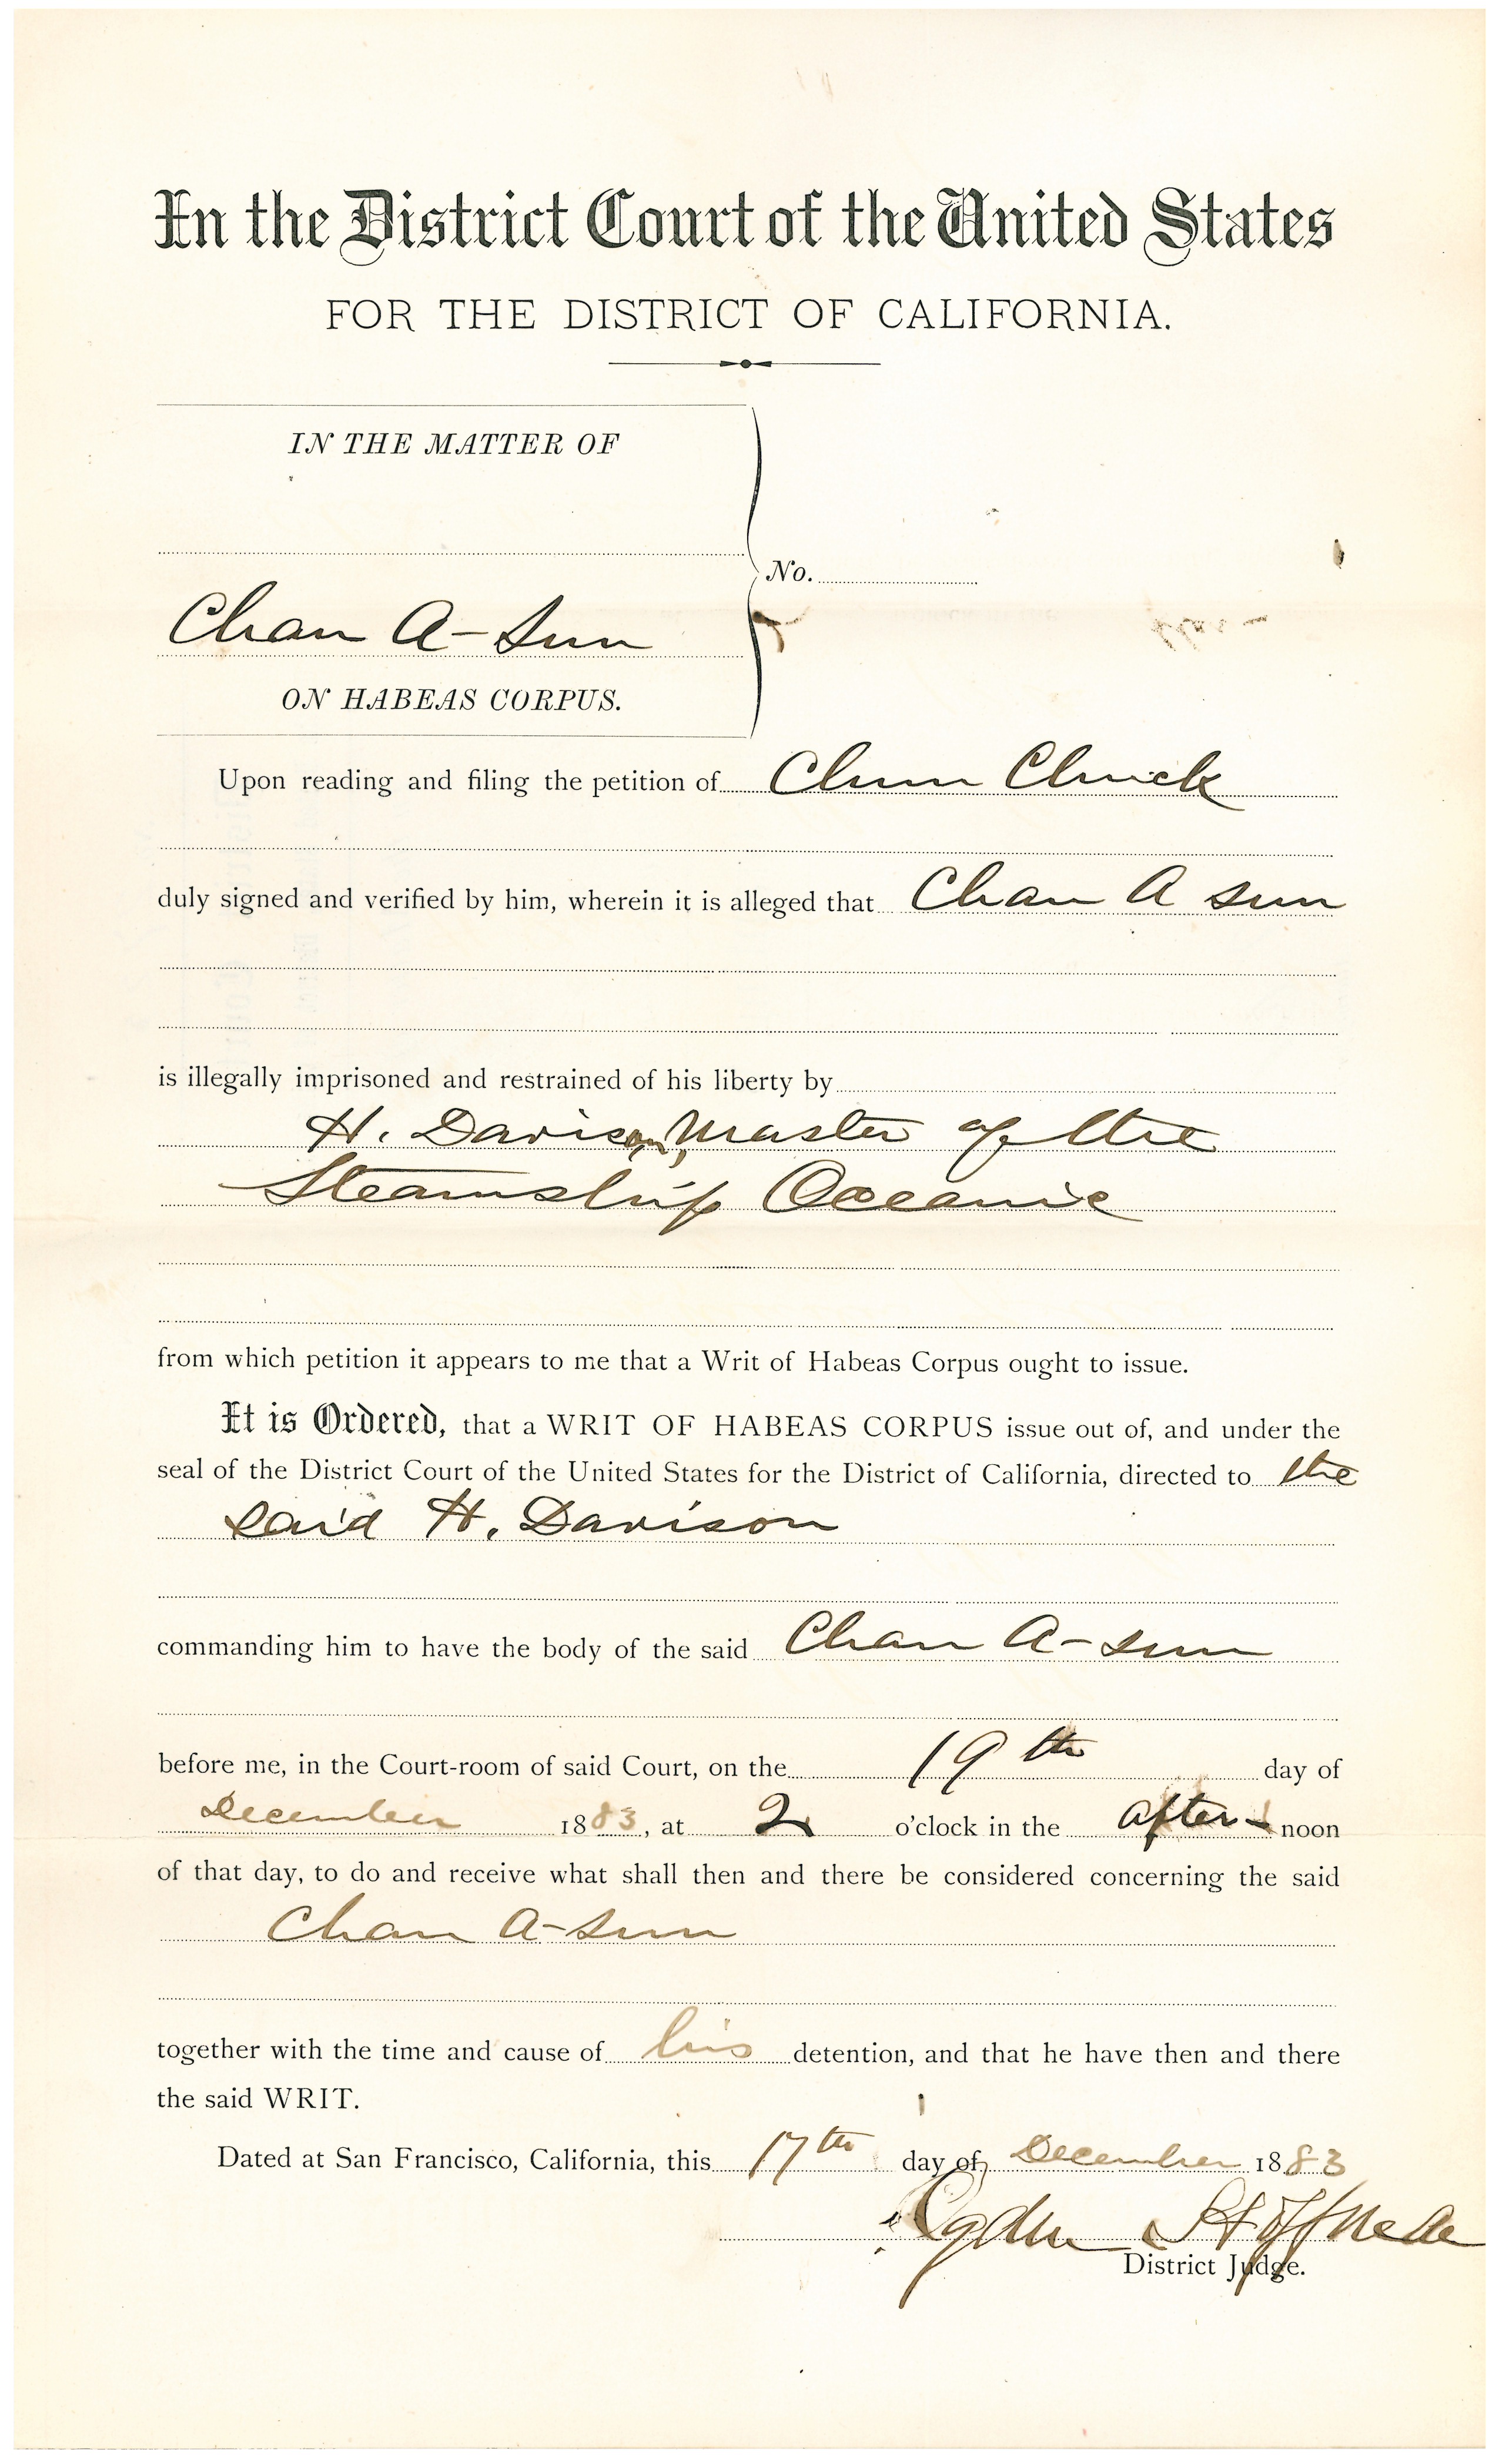 In the District Court of the United States
FOR THE DISTRICT OF CALIFORNIA.
IN THE MATTER OF
No.
Chan A-Sun
ON HABEAS CORPUS.
Upon reading and filing the petition of Chun Chuck
duly signed and verified by him, wherein it is alleged that Chan A sun
is illegally imprisoned and restrained of his liberty by
H. Davison, Master of the
Steamship Oceanic
from which petition it appears to me that a Writ of Habeas Corpus ought to issue.
It is Ordered, that a WRIT OF HABEAS CORPUS issue out of, and under the
seal of the District Court of the United States for the District of California, directed to the
said H. Davison
commanding him to have the body of the said Chan A-sun
before me, in the Court-room of said Court, on the 19th day of
December 1883, at 2 o'clock in the after-noon
of that day, to do and receive what shall then and there be considered concerning the said
Chan A-sun
together with the time and cause of his detention, and that he have then and there
the said WRIT.
Dated at San Francisco, California, this 17th day of December 1883
Ogden Hoffman
District Judge.